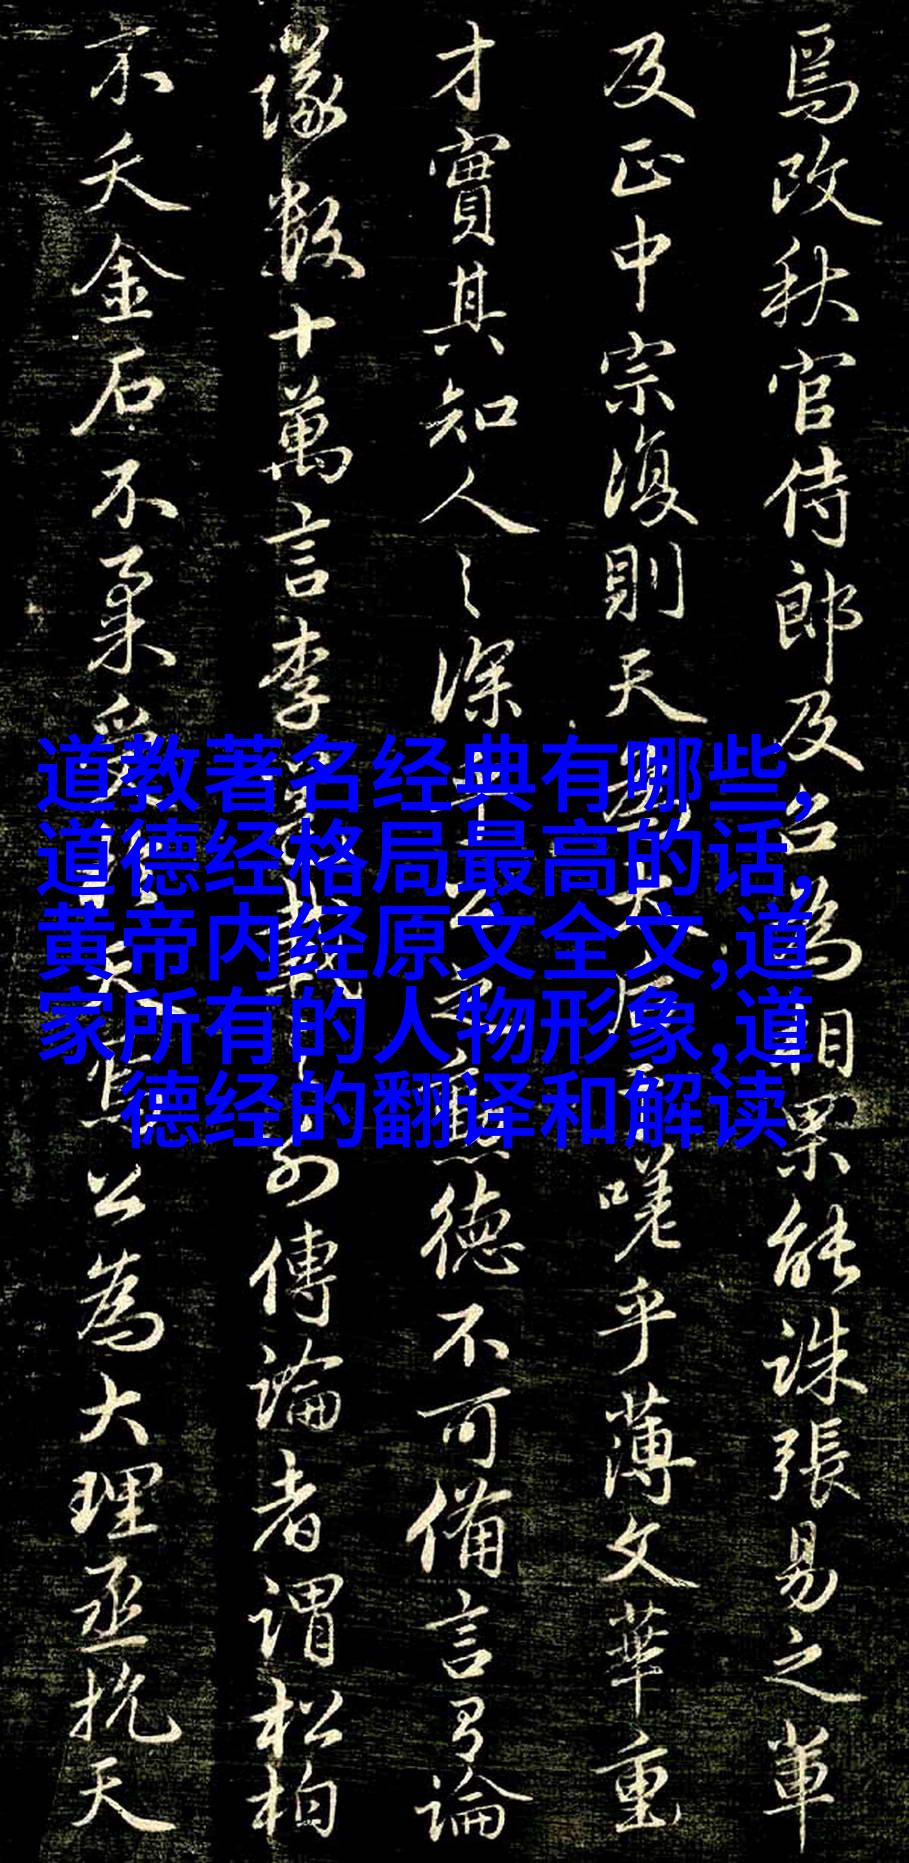 焉改秋官侍郎及召為相果能誅張易之輩
及正中宗復則天為太后嗟乎薄文華重
才實其知人之深 德不可備言有論
議數十萬言李 載 別傳論者謂松柏
不夭金石不柔受 天焉公為大理丞抗天
道教著名经典有哪些,
道德经格局最高的话,
黄帝内经原文全文,道
家所有的人物形象,道
德经的翻译和解读